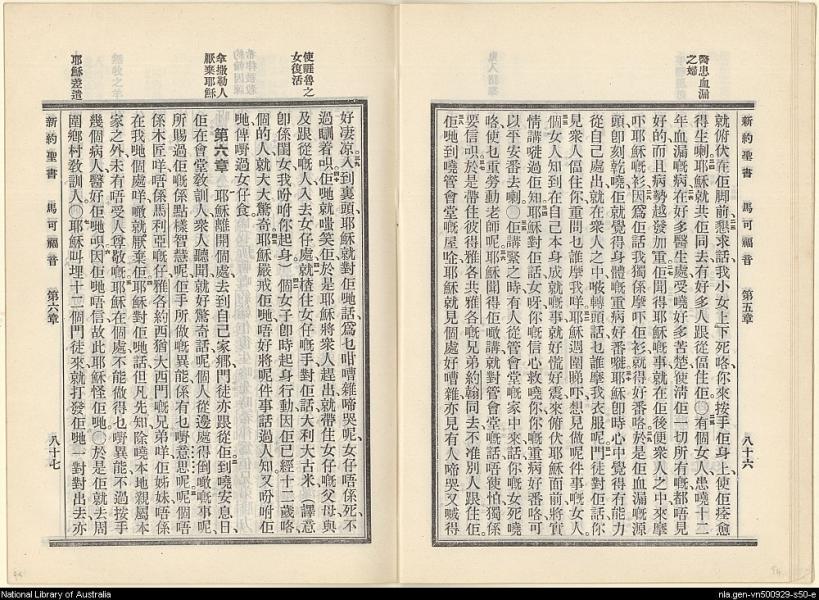 醫患血漏
之婦
新約聖書 馬可福音 第五章 八十六
就俯伏在佢脚前懇求話我小女上下死咯你來按手佢身上使佢痊愈
得生喇耶穌就共佢同去有好多人跟從偪住佢。〇有個女人患嘵十二
年血漏嘅病在好多醫生處受嘵好多苦楚使淸佢一切所有嘅都唔見
好的而且病勢越發加重佢聞得耶穌嘅事就在佢後便衆人之中來摩
吓耶穌嘅衫因爲佢話我獨係摩吓佢衫就得好番咯於是佢血漏嘅源
頭卽刻乾嘵佢就覺得身體嘅重病好番嘥耶穌卽時心中覺得有能力
從自己處出就在衆人之中嚝轉頭話乜誰摩我衣服呢門徒對佢話你
見衆人偪住你重問乜誰摩我咩耶穌週圍睇吓想見做呢件事嘅女人。
個女人知到在自己本身成就嘅事就好慌好震來俯伏耶穌面前將實
情講嘥過佢知耶穌對佢話女呀你嘅信心救嘵你你嘅重病好番咯可
以平安番去喇〇佢講緊之時有人從管會堂嘅家中來話你嘅女死嘵
咯使乜重勞動老師呢耶穌聞得佢哋講就對管會堂嘅話唔使怕獨係
要信呮於是帶住彼得雅各共雅各嘅兄弟約翰同去不准別人跟住佢。
佢哋到嘵管會堂嘅屋唫耶穌就見個處好嘈雜亦見有人啼哭又喊得
使睚魯之
女復活
拿撒勒人
厭棄耶穌
耶穌差遣
好凄凉入到裏頭耶穌就對佢哋話爲乜咁嘈雜啼哭呢女仔唔係死不
過瞓着呮佢哋就嗤笑佢於是耶穌將衆人趕出就帶住女仔嘅父母與
及跟從嘅人入去女仔處就揸住女仔嘅手對佢話大利大古米譯意
卽係閨女我吩咐你起身個女子卽時起身行動因佢已經十二歲咯
個的人就大大驚奇耶穌嚴戒佢哋唔好將呢件事話過人知又吩咐佢
哋俾嘢過女仔食。
第六章 耶穌離開個處去到自己家鄕門徒亦跟從佢到嘵安息日、
佢在會堂敎訓人衆人聽聞就好驚奇話呢個人從邊處得倒嘅事呢、
所賜過佢嘅係點樣智慧呢佢手所做嘅異能係有乜嘢意思呢呢個唔
係木匠咩唔係馬利亞嘅仔雅各約西猶大西門嘅兄弟咩佢姊妹唔係
在我哋個處咩噉就厭棄佢耶穌對佢哋話但凡先知除嘵本地親屬本
家之外未有唔受人尊敬嘅耶穌在個處不能做得乜嘢異能不過按手
幾個病人醫好佢哋呮因佢哋唔信故此耶穌怪佢哋〇於是佢就去周
圍鄕村敎訓人〇耶穌叫埋十二個門徒來就打發佢哋一對對出去亦
新約聖書 馬可福音 第六章 八十七
National Library of Australia
nla.gen-vn500929-s50-e